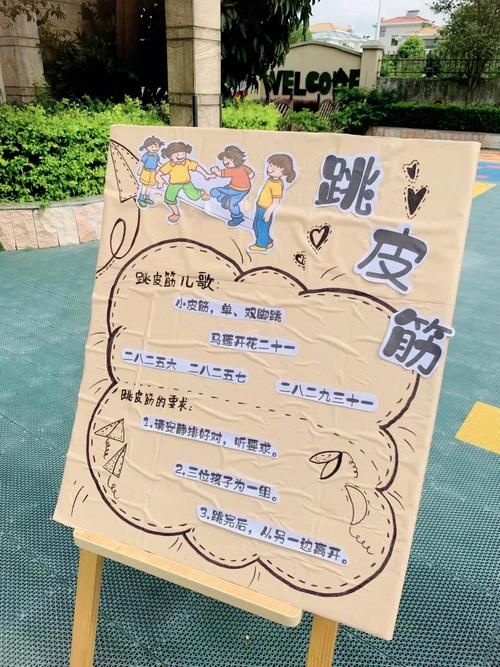 WELCOME
跳皮筋
跳皮筋儿歌:
小皮筋,单、双脚跳
马莲开花二十一
二八二五六 二八二五七
二八二九三十一
跳皮筋的要求:
1.请安静排好对,听要求。
2.三位孩子为一组。
3.跳完后,从另一边离开。